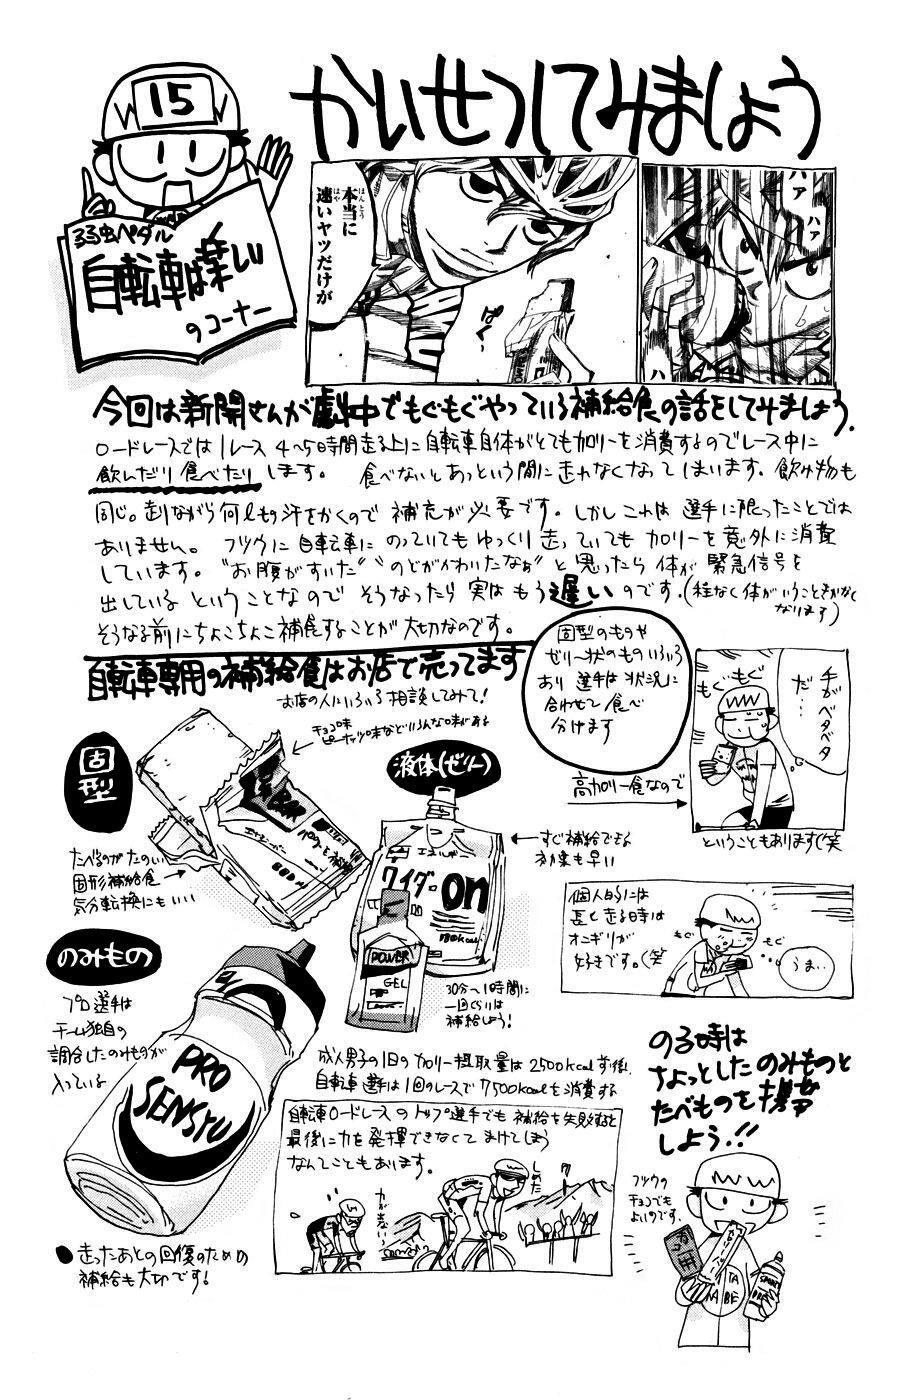 かいせつしてみましょう
15
弱虫ペダル
自転車は楽しい
のコーナー
本当に
ほんとう
速いヤツだけが
はや
ハァ
ハァ
今回は新開さんが劇中でもぐもぐやっている補給食の話をしてみましょう.
ロードレースでは1レース 4〜5時間走る上に自転車自体がとてもカロリーを消費するのでレース中に
飲んだり食べたりします。 食べないとあっという間に走れなくなってしまいます。飲み物も
同じ。走りながら何ℓもの汗をかくので 補充が必要です。しかしこれは選手に限ったことでは
ありません。 フツウに自転車にのっていてもゆっくり走っていても カロリーを意外に消費
しています。"お腹がすいた" "のどがかわいたなぁ"と思ったら 体が緊急信号を
出している ということなので そうなったら実はもう遅いのです。(程なく体がいうことをきかなく
なります)
そうなる前にちょこちょこ補食することが大切なのです。
自転車専用の補給食はお店で売ってます
お店の人にいろいろ相談してみて!
固型のものや
ゼリー状のものいろいろ
あり 選手は状況に
合わせて食べ
分けます
もぐもぐ
手がベタベタ
だ…
高カロリー食なので
ということもあります(笑
固型
チョコ味
ピーナッツ味などいろんな味がある
たべるのがたのしい
固形補給食
気分転換にもいい
液体(ゼリー)
エネルギー
ウイダー
on
180kcal
POWER
GEL
すぐ補給できる
効果も早い
30分〜1時間に
一回くらいは
補給しよう!
個人的には
長く走る時は
オニギリが
好きです。(笑
もぐ
もぐ
うま…
のみもの
プロ選手は
チーム独自の
調合したのみものが
入っている
PRO
SENSYU
成人男子の1日のカロリー摂取量は2500kcal ず後.
自転車選手は1回のレースで7500kcalを消費する
自転車ロードレースのトップ選手でも補給を失敗すると
最後に力を発揮できなくてまけてしまう
なんてこともあります。
力が出ない
しめた
のる時は
ちょっとしたのみものと
たべものを携帯
しよう.!!
フツウの
チョコでも
よいのです.
●走ったあとの回復のための
補給も大切です!